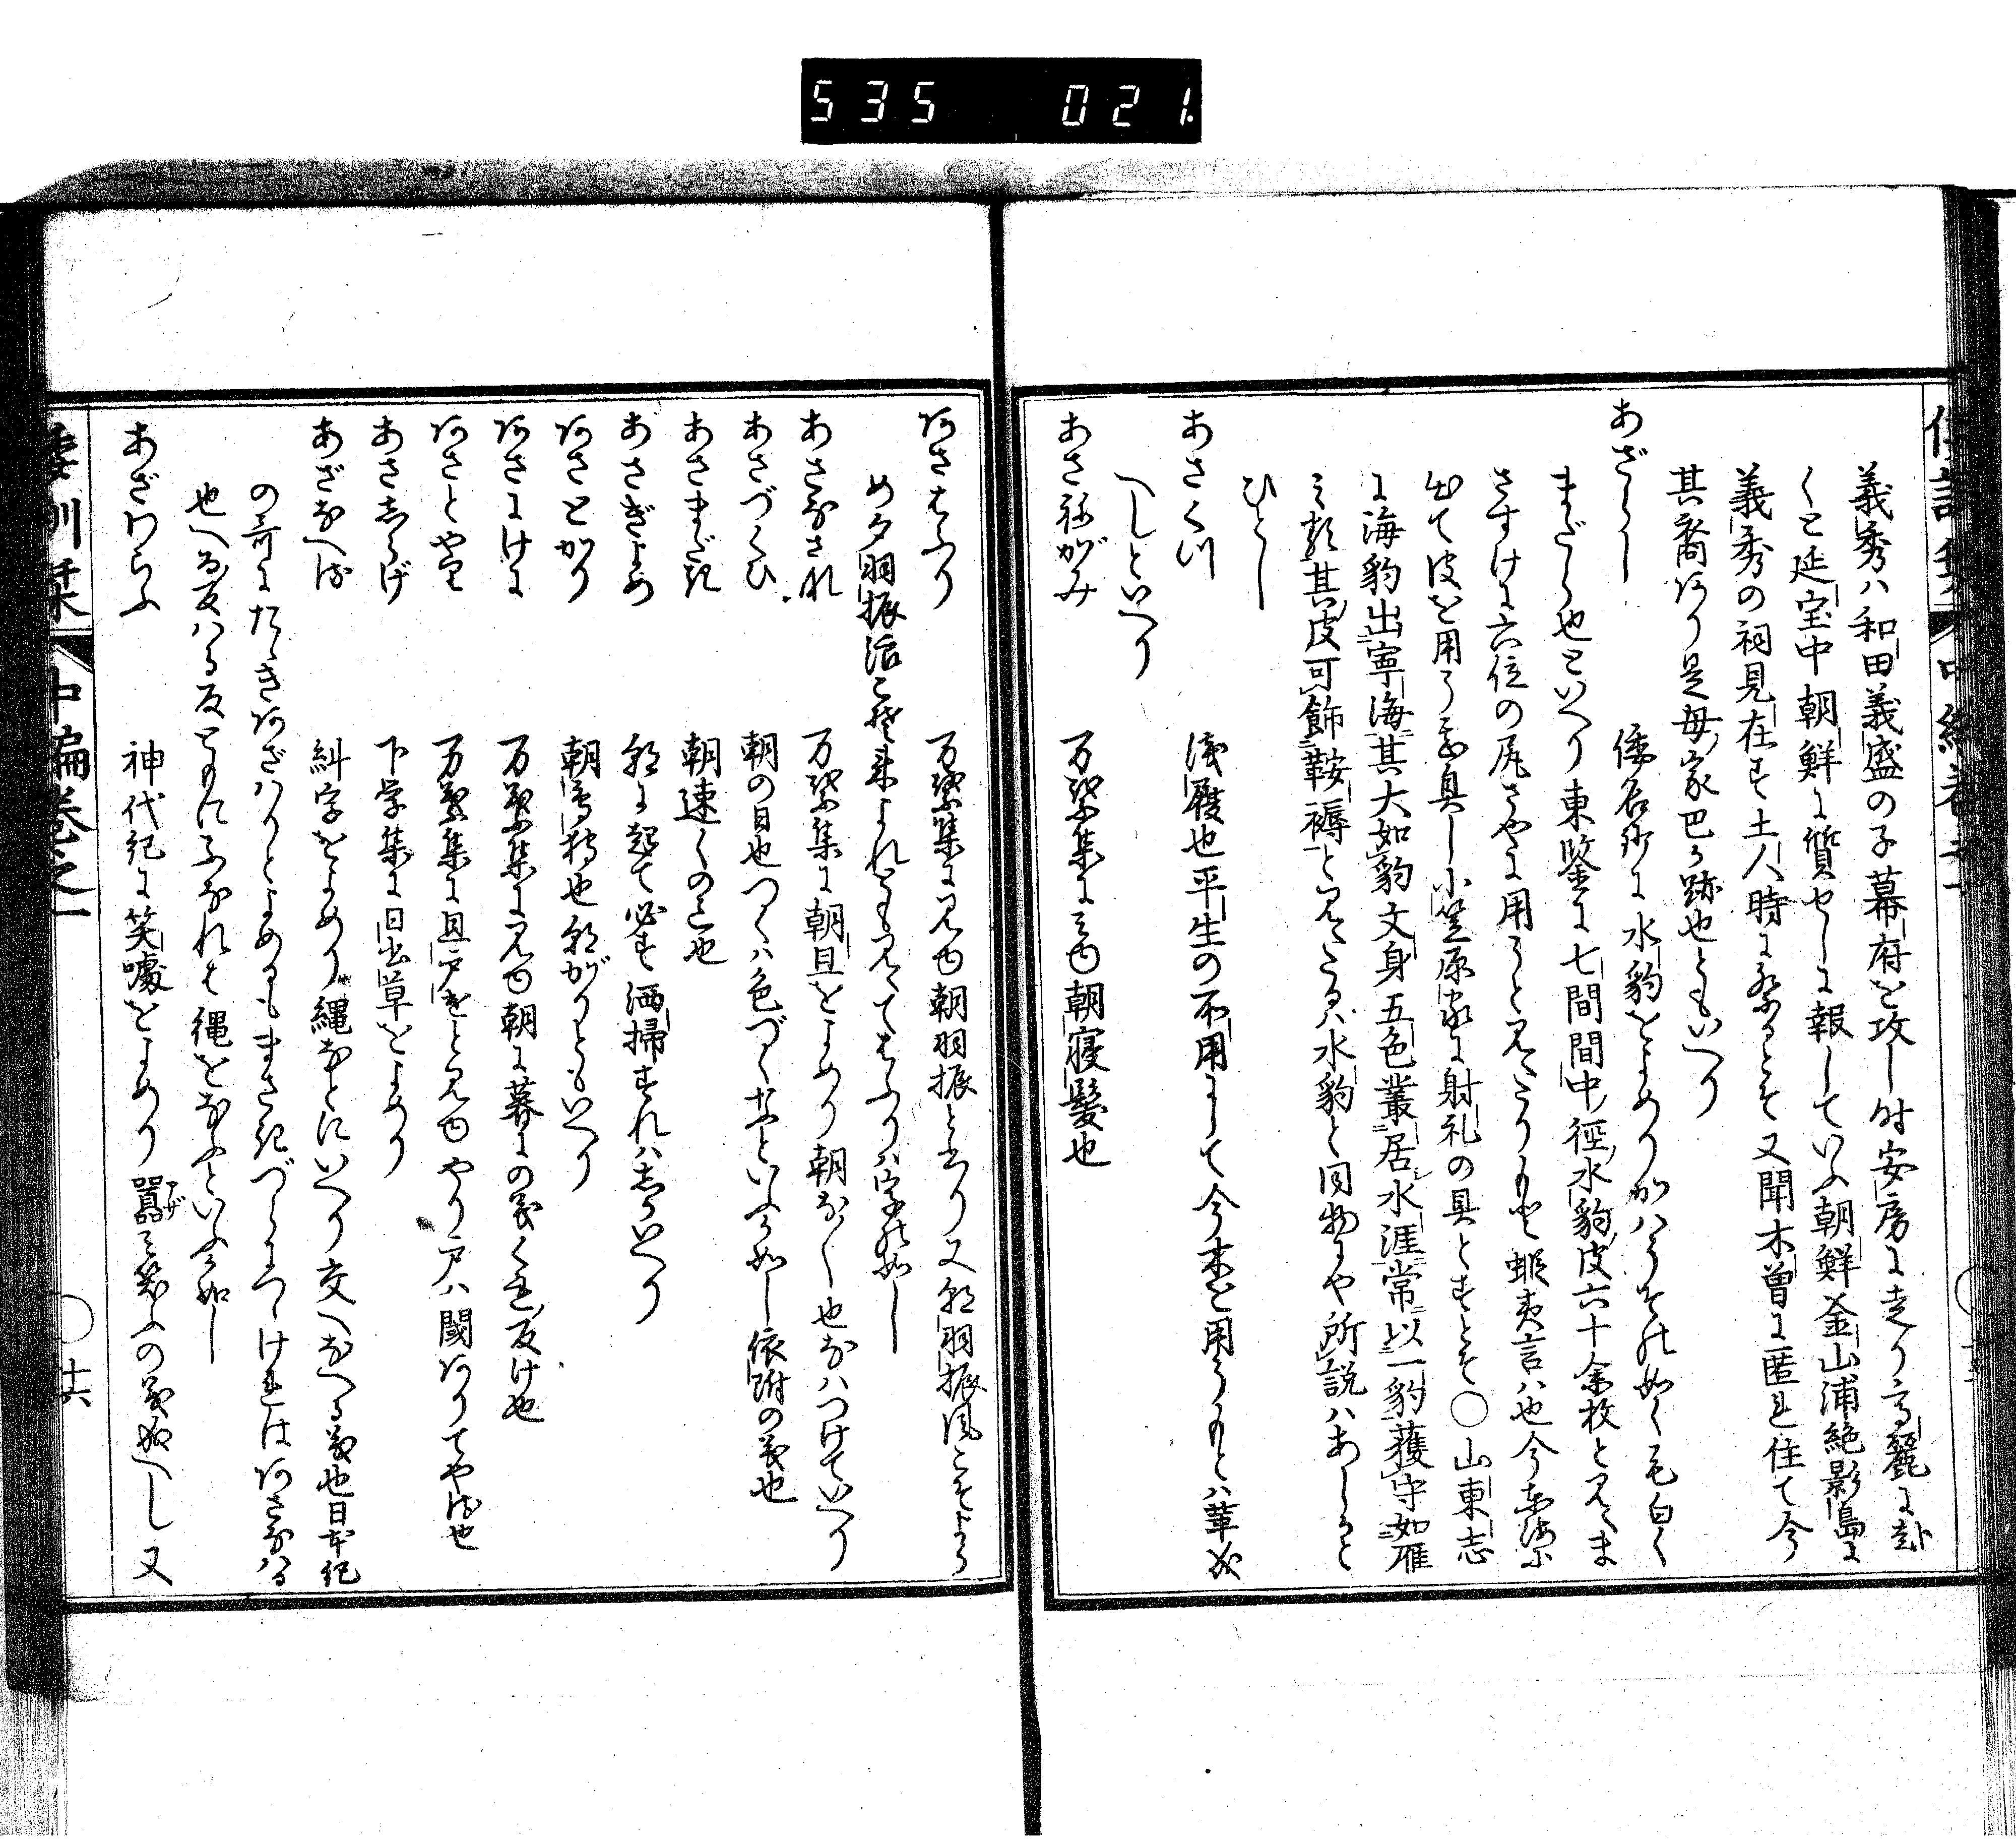 535 021.
義秀ハ和田義盛の子幕府を攻し時安房に走り高麗に赴
くと延宝中朝鮮に質せしに報していふ朝鮮釜山浦絶影島に
義秀の祠見在す土人時に祭るとそ又聞木曽に匿れ住て今
其裔あり是母家巴か跡也ともいへり
あざらし 倭名鈔に水豹をよめりかハうその如く毛白く
まだら也といへり東鑑に七間間中径水豹皮六十余枚と見えま
さすけに六位の尻さやに用うと見えたりもと蝦夷言ハ也今
出て皮を用う馬具し小笠原家に射礼の具とすとそ○山東志
に海豹出寧海其大如豹文身五色叢居水涯常以一豹護守如雁
之類其皮可飾鞍褥と見えたるハ水豹と同物にや所説ハあしかと
ひとし
あさくつ 浅履也平生の不用にして今木を用うもとハ革成
へしといへり
あさねがみ 万葉集にみゆ朝寝髪也
あさはふり 万葉集に見ゆ朝羽振と書り又朝羽振風こそよら
め夕羽振浪こそ来よれともみえてはふりハ字の如し
あさなされ 万葉集に朝旦をよめり朝な〱也なハつけていへり
あさづくひ 朝の日也つくハ色づくなといふか如し依附の義也
あさまだき 朝速くの意也
あさぎよめ 朝に起て必す洒掃すれハしかいへり
あさとがり 朝鳥狩也朝がりともいへり
あさにけに 万葉集に見ゆ朝に暮にの義くれ反け也
あさとやり 万葉集に旦戸をと見ゆやり戸ハ閾ありてやる也
あさしらげ 下学集に日出草をよめり
あざなへる 糾字をよめり縄などにいへり交へなへる義也日本紀
の哥にたゝきあざハりとよめるもまさきづらにつゝけれはあさなハる
也へる反ハる反ともにふなれは縄をなふといふか如し
あざわらふ 神代紀に笑噱をよめり囂アザミ笑ふの義成へし又
倭訓栞 中編巻之一 ○十六